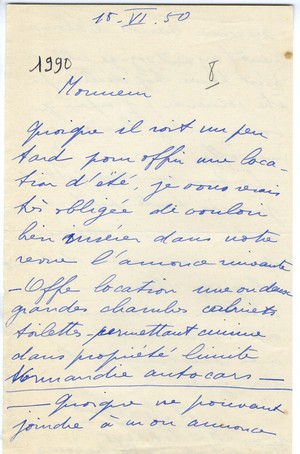 15-VI-50
1990
8
Monsieur
Quoique il soit un peu
tard pour offrir une loca-
tion d'été, je vous serais
très obligée de vouloir
bien insérer dans votre
revue l'annonce suivante
- Offre location une ou deux
grandes chambres cabinets
toilettes - permettant cuisine
dans propriété limite
Normandie autocars -
- Quoique ne pouvant
joindre à mon annonce